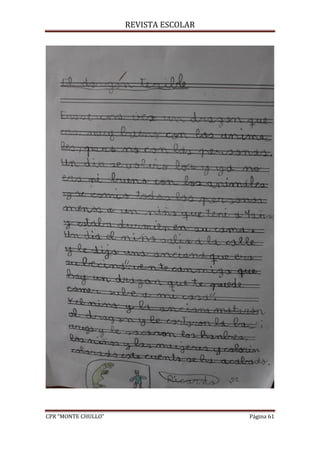 REVISTA ESCOLAR
El dragón terible
Erase una vez un dragon que
era muy bueno con los anima
les, pero no con las personas.
Un dia se volvio loco y ya no
era ni bueno con los animales
y se comio todas las personas
menos a un niño que
y estaba durmiendo en su cama.
Un dia el niño salio a la calle
y le dijo una anciana que era
su vecina: vente conmigo que
hay un dragon que te puede
comer, sube a mi casa.
Y el niño y la anciana mataron
al dragon y le cortaron la ba
rriga y le sacaron los hombres,
los niños y las mugeres y colorin
colorado este cuento se ha acabado.
Ricardo 2º
CPR "MONTE CHULLO"
Página 61